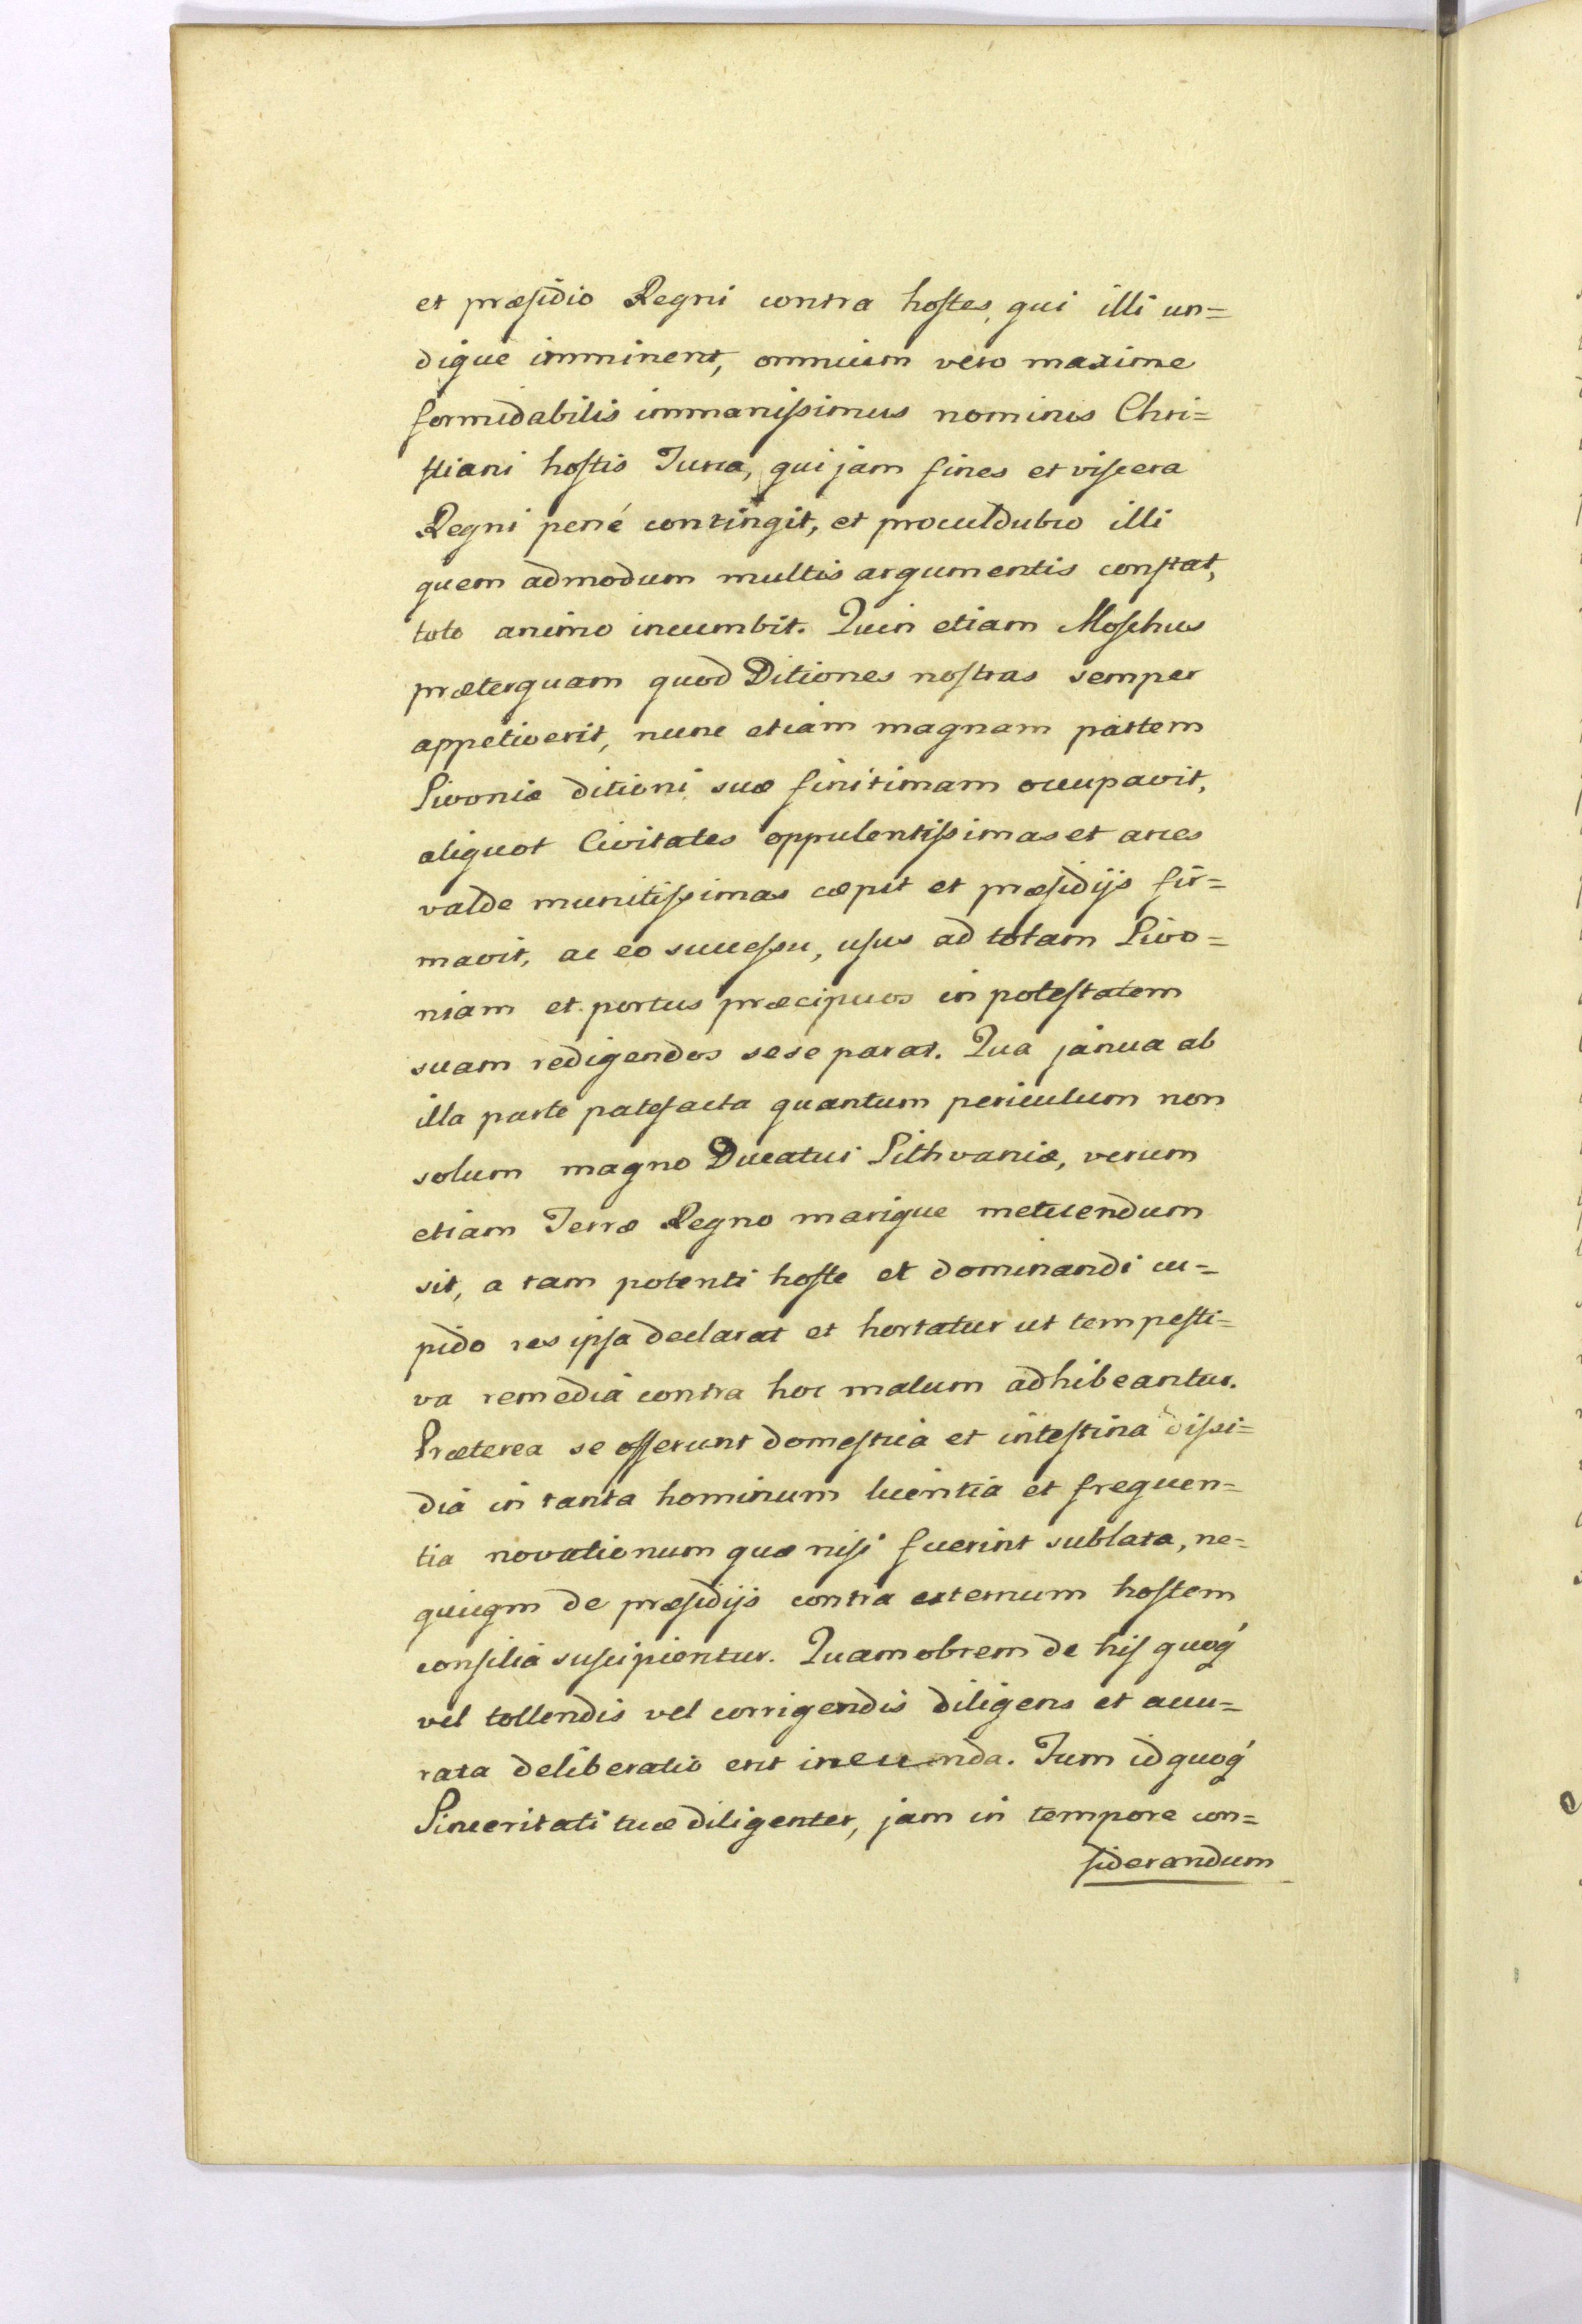 et præsidio Regni contra hostes, qui illi un=
dique imminent, omnium vero maxime
formidabilis immanissimus nominis Chri=
stiani hostis Turca, qui jam fines et viscera
Regni pené contingit, et proculdubio illi
quem admodum multis argumentis constat,
toto animo incumbit. Quin etiam Moschus
præterquam quod Ditiones nostras semper
appetiverit, nunc etiam magnam partem
Livoniæ ditioni suæ finitimam occupavit,
aliquot Civitates oppulentissimas et arces
valde munitissimas cæpit et præsidijs fir=
mavit, ac eo successu, usus ad totam Livo=
niam et portus præcipuos in potestatem
suam redigendos sese parat. Qua janua ab
illa parte patefacta quantum periculum non
solum magno Ducatui Lithvaniæ, verum
etiam Terræ Regno marique metuendum
sit, a tam potenti hoste et dominandi cu=
pido res ipsa declarat et hortatur ut tempesti=
va remedia contra hoc malum adhibeantur.
Præterea se offerunt domestica et intestina dissi=
dia in tanta hominum licentia et frequen=
tia novationum quæ nisi fuerint sublata, ne=
quicqm de præsidijs contra externum hostem
consilia suscipientur. Quamobrem de his quoq́
vel tollendis vel corrigendis diligens et accu=
rata deliberatio erit ineunda. Tum id quoq́
Sinceritati tuæ diligenter, jam in tempore con=
siderandum